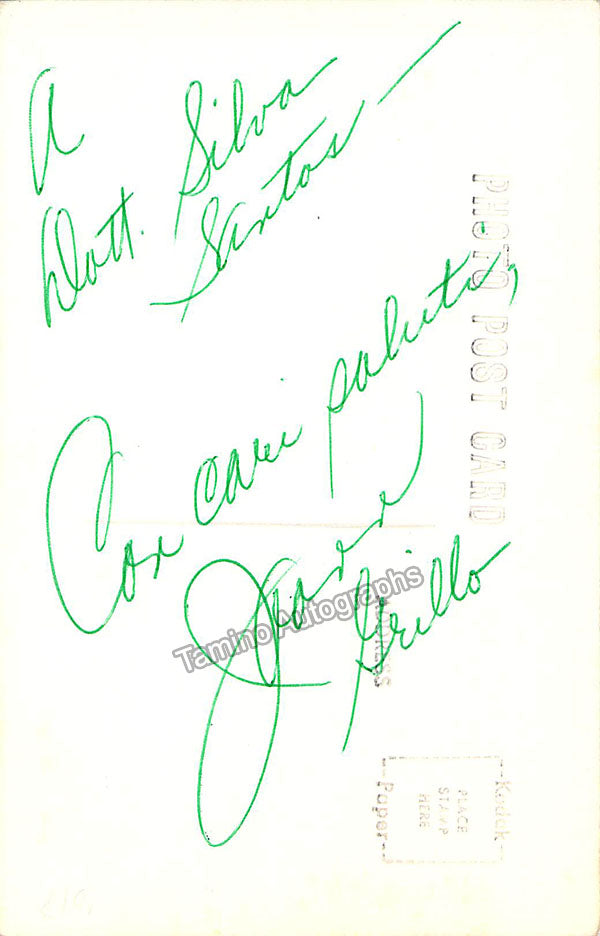 A
Dott. Silva
Santos —
Con cari saluti,
Joann
Grillo
PHOTO POST CARD
Tamino Autographs
Kodak
PLACE
STAMP
HERE
Paper